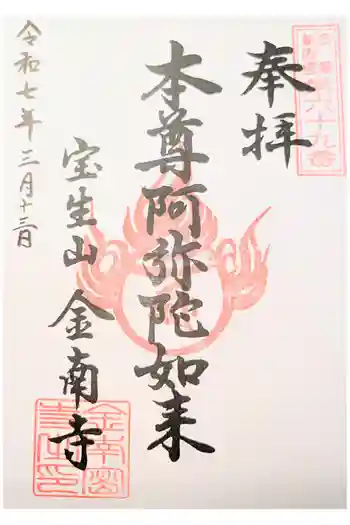 奉拝
第六十九番
本尊阿弥陀如来
宝生山 金南寺
令和七年三月十三日